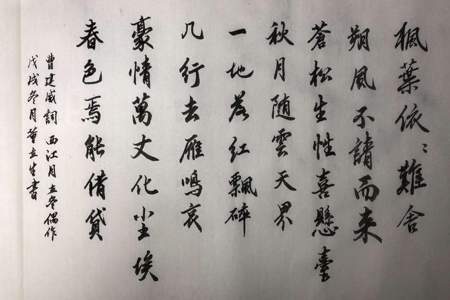 楓葉依〻難舍
朔風不請而来
蒼松生性喜懸臺
秋月随雲天界
一地落红飄碎
几行去雁鳴哀
豪情萬丈化尘埃
春色焉能借貸
曹建威詞 西江月 立冬偶作
戊戌冬月 立生書